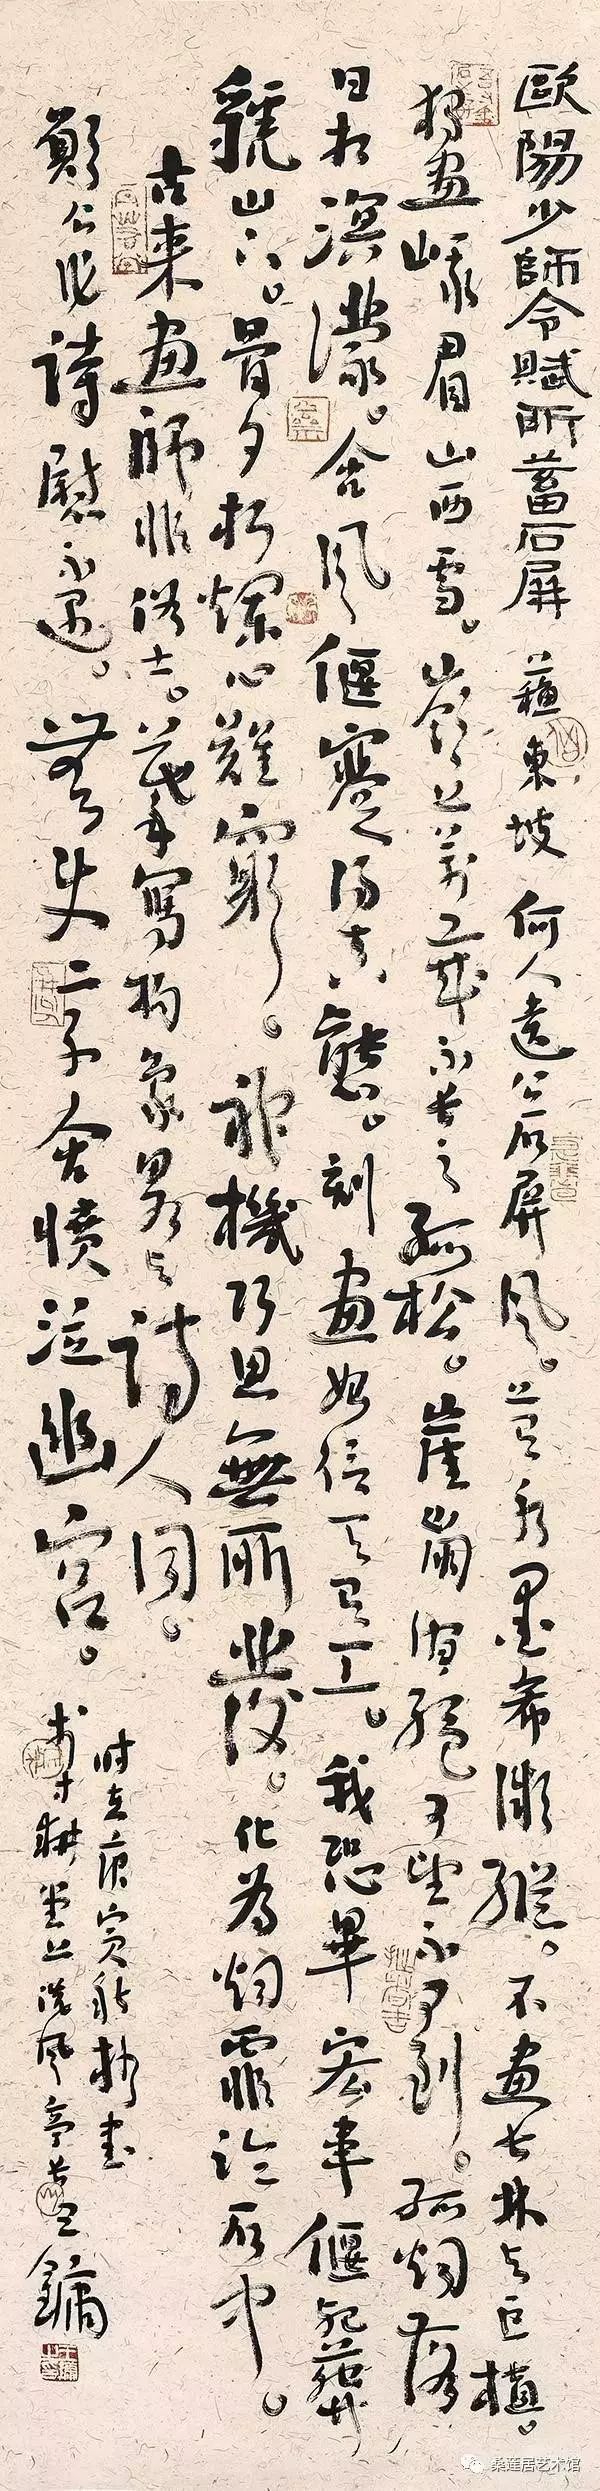 歐陽少師令賦所蓄石屏 蘇東坡 何人遺公石屏風。上有水墨希微蹤。不畫長林与巨植。
獨畫峨眉山西雪。嶺上萬歲不老之孤松。崖崩澗絕可望不可到。孤烟落
日相溟濛。含風偃蹇得真態。刻畫始信天有工。我恐畢宏韋偃死葬
虢山下。骨可朽爛心難窮。神機巧思無所發。化為烟霏淪石中。
古來畫師非俗士。摹寫物象略与詩人同。
願公作詩慰不遇。無使二子含憤泣幽宮。
時在庚寅秋杪書
寸耕堂上洗風亭 鏞
桑蓮居艺术馆